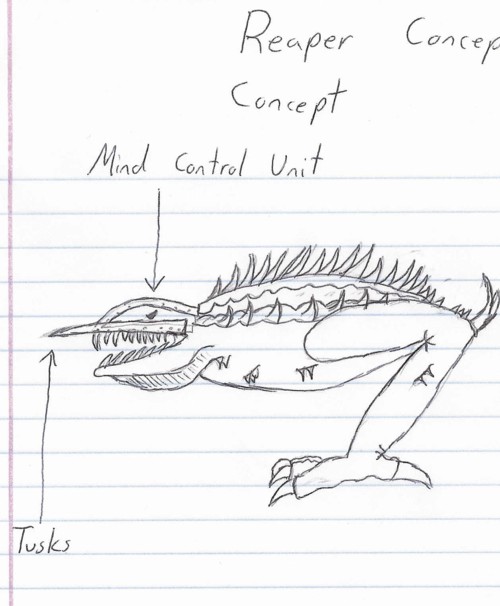 Reaper Concep
Concept
Mind Control Unit
Tusks